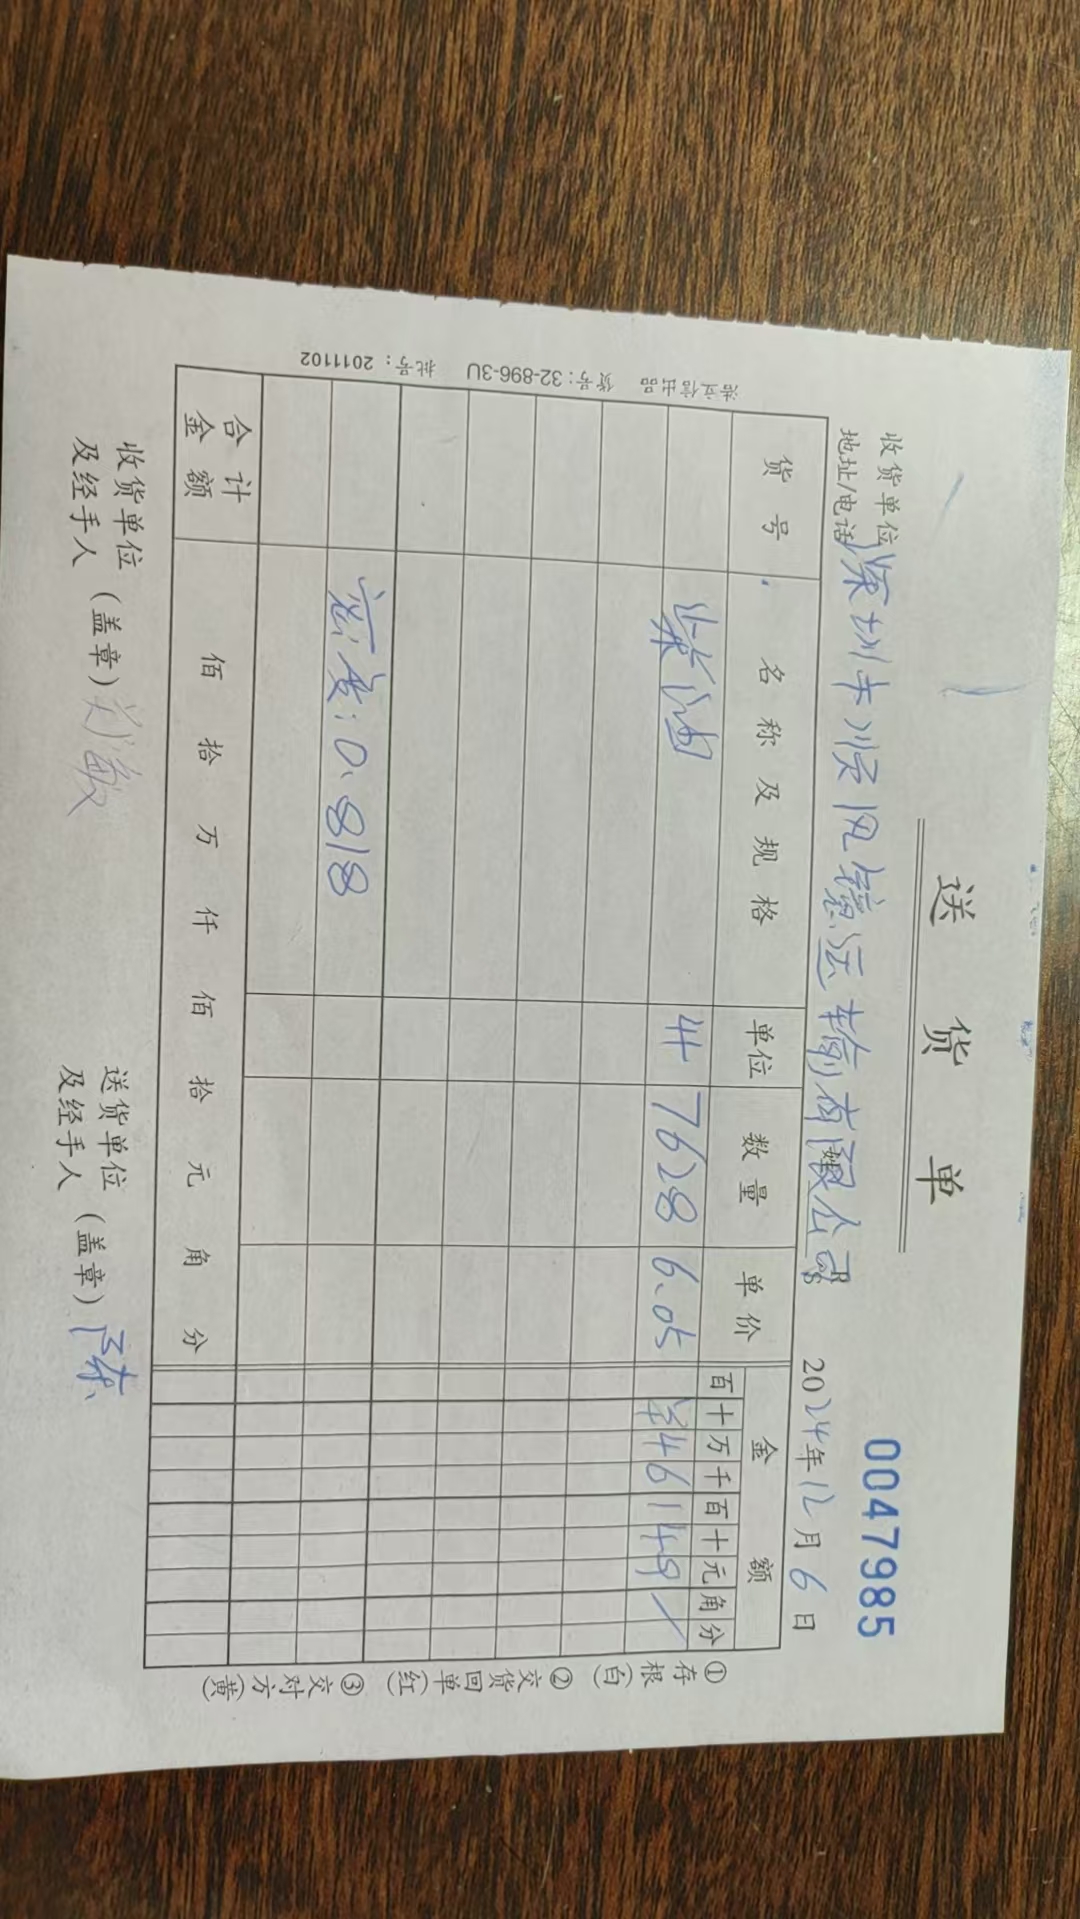 送货单
0047985
收货单位
地址/电话 深圳卡顺风镱运输有限公司
2024年12月6日
货号 名称及规格 单位 数量 单价 金额
百十万千百十元角分
柴油 升 7628 6.05 ¥46149
密度:0.818
合计金额 佰 拾 万 仟 佰 拾 元 角 分
收货单位及经手人(盖章)
送货单位及经手人(盖章)陈
①存根(白) ②交货回单(红) ③交对方(黄)
浩立信出品 货号:32-896-3U 批号:2011102